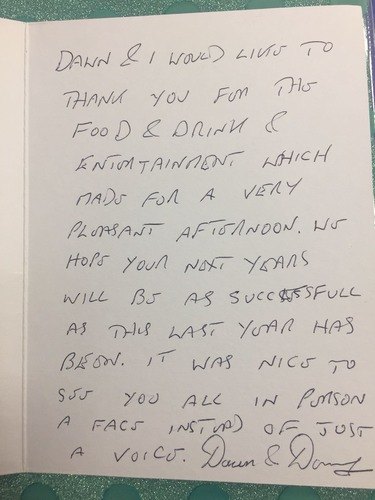 DAWN & I WOULD LIKE TO
THANK YOU FOR THE
FOOD & DRINK &
ENTERTAINMENT WHICH
MADE FOR A VERY
PLEASANT AFTERNOON. WE
HOPE YOUR NEXT YEARS
WILL BE AS SUCCESSFULL
AS THIS LAST YEAR HAS
BEEN. IT WAS NICE TO
SEE YOU ALL IN PERSON
A FACE INSTEAD OF JUST
A VOICE. Dawn &